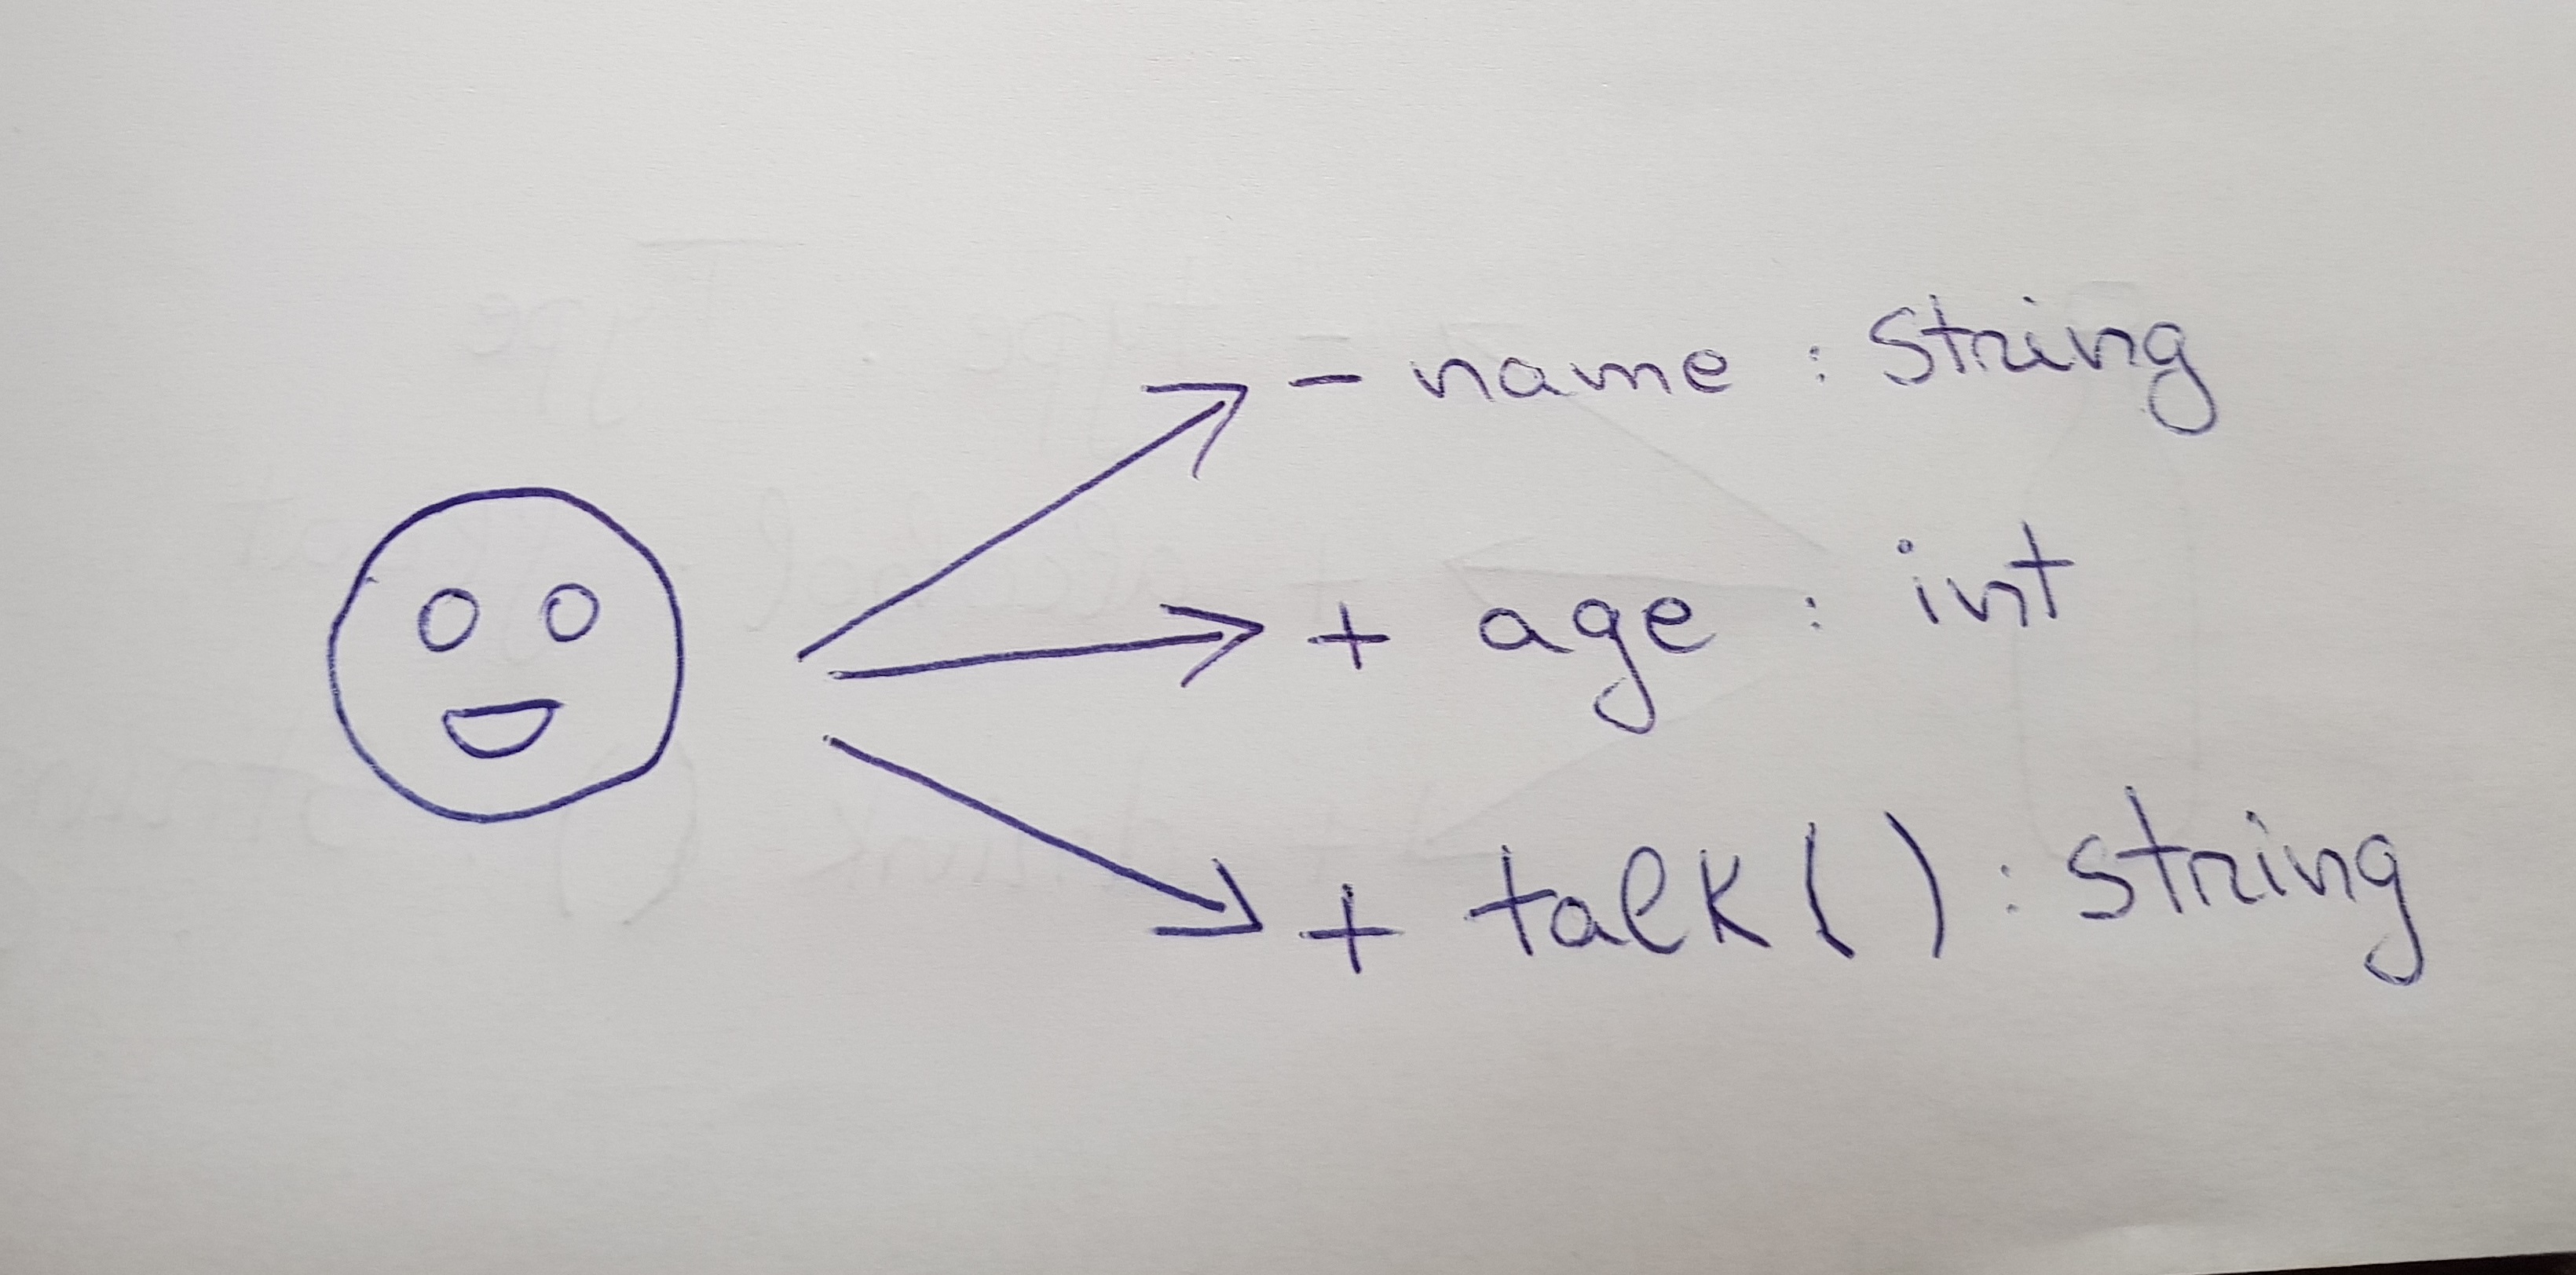 - name : string
+ age : int
+ talk ( ) : string